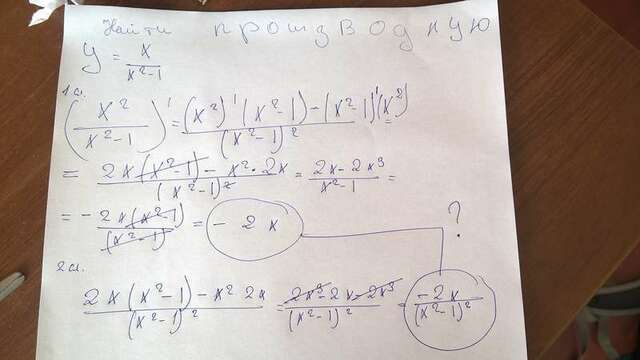 Найти производную
y = x/(x²-1)
1 сл.
(x²/(x²-1))' = ((x²)'(x²-1)-(x²-1)'(x²))/(x²-1)² =
= (2x(x²-1) - x²·2x)/(x²-1)² = (2x-2x³)/(x²-1) =
= - 2x(x²-1)/(x²-1) = - 2x
?
2 сл.
(2x(x²-1)-x² 2x)/(x²-1)² = (2x³-2x-2x³)/(x²-1)² = -2x/(x²-1)²